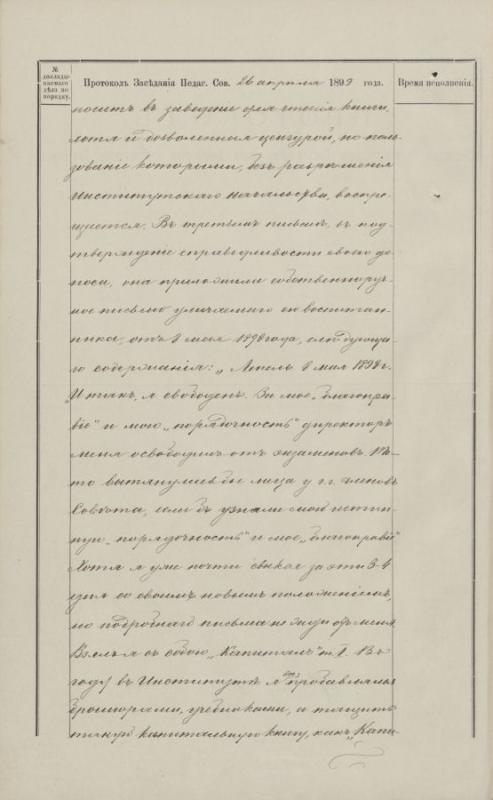 № докладываемаго дѣла по порядку.
Протоколъ Засѣданія Педаг. Сов. 26 апрѣля 1899 года.
Время исполненія.
носитъ въ заведеніе для чтенія книги,
хотя и дозволенныя цензурой, но поль-
зованіе которыми, безъ разрѣшенія
институтскаго начальства, воспре-
щается. Въ третьемъ письмѣ, въ под-
твержденіе справедливости своего до-
носа, она приложила собственноруч-
ное письмо уличаемаго ею воспитан-
ника, отъ 8 мая 1898 года, слѣдующа-
го содержанія: „Лепель 8 мая 1898 г.
„И такъ, я свободенъ. За мое „благонра-
віе" и мою „порядочность" директоръ
меня освободилъ отъ экзаменовъ. То-то
вытянулись бы лица у г.г. членовъ
Совѣта, если бъ узнали мою истин-
ную „порядочность" и мое „благонравіе"
Хотя я уже почти свыкся за эти 3-4
дня со своимъ новымъ положеніемъ,
но подробнаго письма не жди отъ меня.
Взялъ я съ собою „Капиталъ" т. I. Въ
году въ Институтѣ я все пробавлялся
брошюрами, учебниками, а тащить
такую капитальную книгу, какъ „Капи-